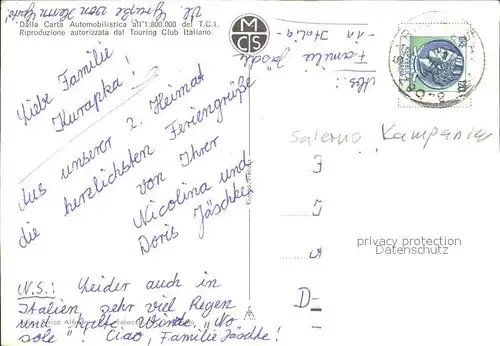 "Dalla Carta Automobilistica all'1:800.000 del T.C.I.
Riproduzione autorizzata dal Touring Club Italiano.
M
C S
Liebe Familie
Kurapka!
Aus unserer 2. Heimat
die herzlichsten Feriengrüße
von Ihrer
Nicolina und
Doris Jäschke
N.S.: Leider auch in
Italien, sehr viel Regen
und "kalte Winde". "No
sole"! Ciao, Familie Jäschke!
Abs.:
Familie
- in Italia -
Salerno Kampanien
privacy protection
Datenschutz
D-